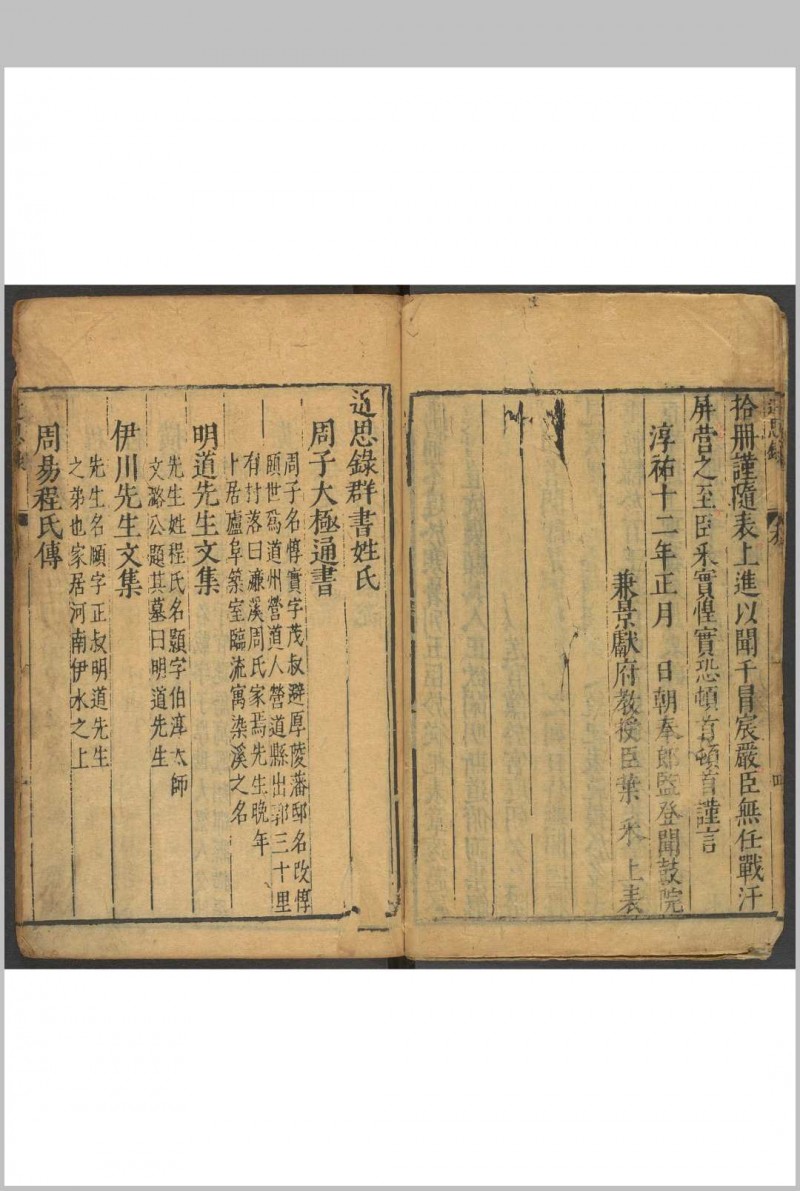 拾冊謹隨表上進以聞干冐宸嚴臣無任戰汗
屏營之至臣采實惶實恐頓首頓首謹言
淳祐十二年正月　日朝奉郎監登聞鼓院
兼景獻府教授臣葉采上表
近思錄群書姓氏
周子太極通書
周子名惇實字茂叔避厚陵藩邸名改惇
頤世爲道州營道人營道縣出郭三十里
有村落曰濂溪周氏家焉先生晚年
卜居廬阜築室臨流寓濂溪之名
明道先生文集
先生姓程氏名顥字伯淳太師
文潞公題其墓曰明道先生
伊川先生文集
先生名頤字正叔明道先生
之弟也家居河南伊水之上
周易程氏傳